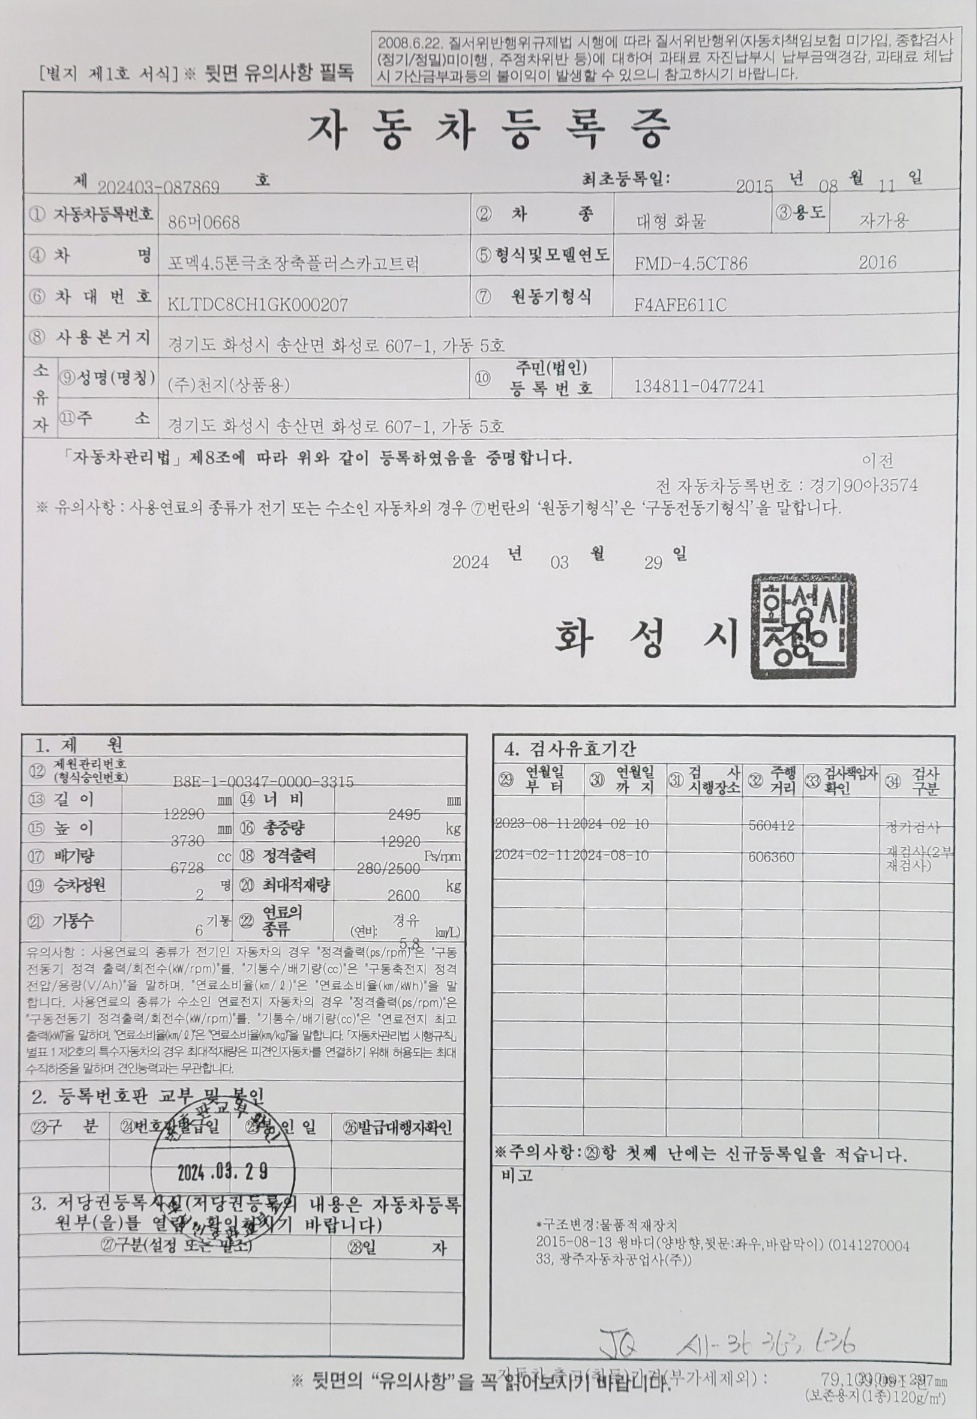 2008.6.22. 질서위반행위규제법 시행에 따라 질서위반행위(자동차책임보험 미가입, 종합검사
(정기/정밀)미이행, 주정차위반 등)에 대하여 과태료 자진납부시 납부금액경감, 과태료 체납
시 가산금부과등의 불이익이 발생할 수 있으니 참고하시기 바랍니다.
[별지 제1호 서식] ※ 뒷면 유의사항 필독
자동차등록증
제 202403-087869 호 최초등록일: 2015 년 08 월 11 일
① 자동차등록번호 86머0668 ② 차 종 대형 화물 ③용도 자가용
④ 차 명 포멕4.5톤극초장축플러스카고트럭 ⑤형식및모델연도 FMD-4.5CT86 2016
⑥ 차대번호 KLTDC8CH1GK000207 ⑦ 원동기형식 F4AFE611C
⑧ 사용본거지 경기도 화성시 송산면 화성로 607-1, 가동 5호
소유자 ⑨성명(명칭) (주)천지(상품용) ⑩ 주민(법인)등록번호 134811-0477241
⑪주 소 경기도 화성시 송산면 화성로 607-1, 가동 5호
「자동차관리법」제8조에 따라 위와 같이 등록하였음을 증명합니다.
이전
전 자동차등록번호 : 경기90아3574
※ 유의사항 : 사용연료의 종류가 전기 또는 수소인 자동차의 경우 ⑦번란의 '원동기형식'은 '구동전동기형식'을 말합니다.
2024 년 03 월 29 일
화성시
화성시
장인
1. 제 원
⑫ 제원관리번호(형식승인번호) B8E-1-00347-0000-3315
⑬ 길이 12290 mm ⑭ 너비 2495 mm
⑮ 높이 3730 mm ⑯ 총중량 12920 kg
⑰ 배기량 6728 cc ⑱ 정격출력 280/2500 Ps/rpm
⑲ 승차정원 2 명 ⑳ 최대적재량 2600 kg
㉑ 기통수 6 기통 ㉒ 연료의 종류 경유 (연비: 5.8 km/L)
유의사항 : 사용연료의 종류가 전기인 자동차의 경우 "정격출력(ps/rpm)"은 "구동
전동기 정격 출력/회전수(kW/rpm)"를, "기통수/배기량(cc)"은 "구동축전지 정격
전압/용량(V/Ah)"을 말하며, "연료소비율(km/ℓ)"은 "연료소비율(km/kWh)"을 말
합니다. 사용연료의 종류가 수소인 연료전지 자동차의 경우 "정격출력(ps/rpm)"은
"구동전동기 정격출력/회전수(kW/rpm)"를, "기통수/배기량(cc)"은 "연료전지 최고
출력(kW)"을 말하며, "연료소비율(km/ℓ)"은 "연료소비율(km/kg)"을 말합니다. 「자동차관리법 시행규칙」
별표 1 제2호의 특수자동차의 경우 최대적재량은 피견인자동차를 연결하기 위해 허용되는 최대
수직하중을 말하며 견인능력과는 무관합니다.
2. 등록번호판 교부 및 봉인
㉓구 분 ㉔번호판발급일 ㉕봉인일 ㉖발급대행자확인
2024.03.29
3. 저당권등록사실(저당권등록의 내용은 자동차등록
원부(을)를 열람·확인하시기 바랍니다)
㉗구분(설정 또는 말소) ㉘일 자
4. 검사유효기간
㉙ 연월일부터 ㉚ 연월일까지 ㉛ 검사시행장소 ㉜ 주행거리 ㉝ 검사책임자확인 ㉞ 검사구분
2023-08-11 2024-02-10 560412 정기검사
2024-02-11 2024-08-10 606360 재검사(2부
재검사)
※주의사항:㉙항 첫째 난에는 신규등록일을 적습니다.
비고
*구조변경:물품적재장치
2015-08-13 윙바디(양방향,뒷문:좌우,바람막이) (0141270004
33, 광주자동차공업사(주))
자동차 출고(취득)가격(부가세제외) : 79,109,091 원
※ 뒷면의 "유의사항"을 꼭 읽어보시기 바랍니다.
(보존용지(1종)120g/㎡)